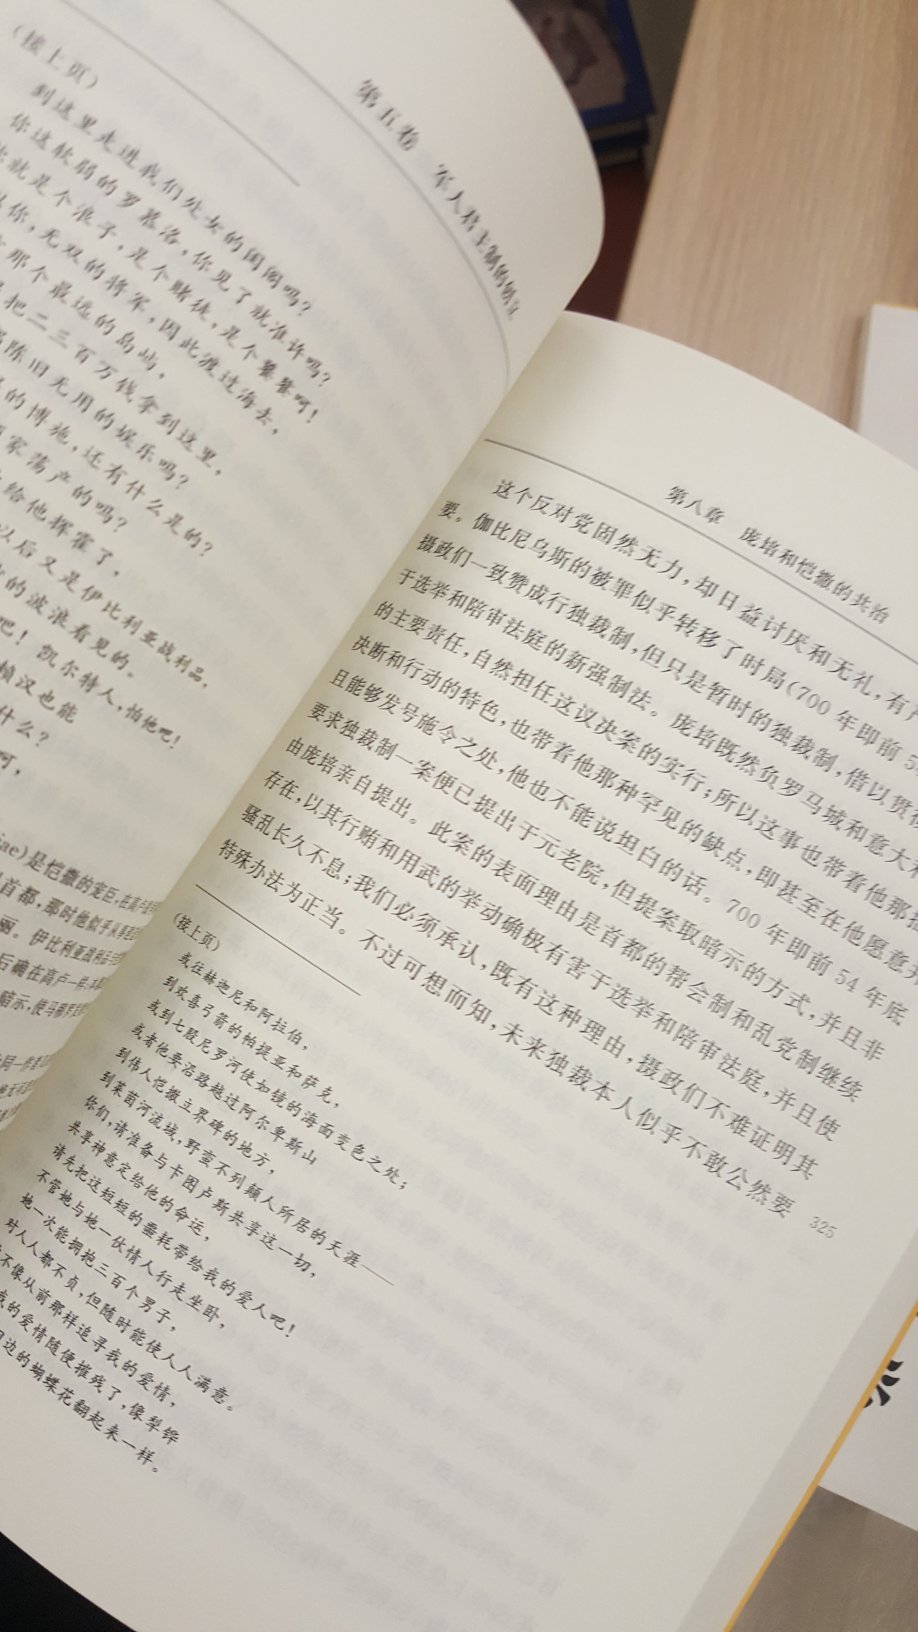 第五卷 军人君主制的创立
(接上页)
到这里走进我们处女的闺阁吗？
你这软弱的罗慕洛，你见了就准许吗？
你就是个浪子，是个赌徒，是个饕餮呵！
你，无双的将军，因此渡过海去，
那个最远的岛屿，
把二三百万钱拿到这里，
陈旧无用的娱乐吗？
的博施，还有什么是的？
家荡产的吗？
给他挥霍了，
以后又是伊比利亚战利品，
的波浪看见的。
吧！凯尔特人，怕他吧！
赖汉也能
什么？
呵，
是恺撒的宠臣，在高卢
首都，那时他似乎
丽。伊比利亚战利品
后确在高卢一样
暗示，使马
同一样
第八章 庞培和恺撒的共治
这个反对党固然无力，却日益讨厌和无礼，有
要。伽比尼乌斯的被罪似乎转移了时局(700年即前5
摄政们一致赞成行独裁制，但只是暂时的独裁制，借以贯彻
于选举和陪审法庭的新强制法。庞培既然负罗马城和意大利
的主要责任，自然担任这议决案的实行；所以这事也带着他那
决断和行动的特色，也带着他那种罕见的缺点，即甚至在他愿意并
且能够发号施令之处，他也不能说坦白的话。700年即前54年底
要求独裁制一案便已提出于元老院，但提案取暗示的方式，并且非
由庞培亲自提出。此案的表面理由是首都的帮会制和乱党制继续
存在，以其行贿和用武的举动确极有害于选举和陪审法庭，并且使
骚乱长久不息；我们必须承认，既有这种理由，摄政们不难证明其
特殊办法为正当。不过可想而知，未来独裁本人似乎不敢公然要
(接上页)
或往赫迦尼和阿拉伯，
到欢喜弓箭的帕提亚和萨克，
或到七股尼罗河使如镜的海面变色之处；
或者他要沿路越过阿尔卑斯山
到伟人恺撒立界碑的地方，
到莱茵河流域，野蛮不列颠人所居的天涯——
你们，请准备与卡图卢斯共享这一切，
共享神意定给他的命运，
请先把这短短的噩耗带给我的爱人吧！
不管她与她一伙情人行走坐卧，
她一次能拥抱三百个男子，
对人人都不贞，但随时能使人人满意。
不像从前那样追寻我的爱情，
我的爱情随便摧残了，像犁铧
边的蝴蝶花翻起来一样。
325